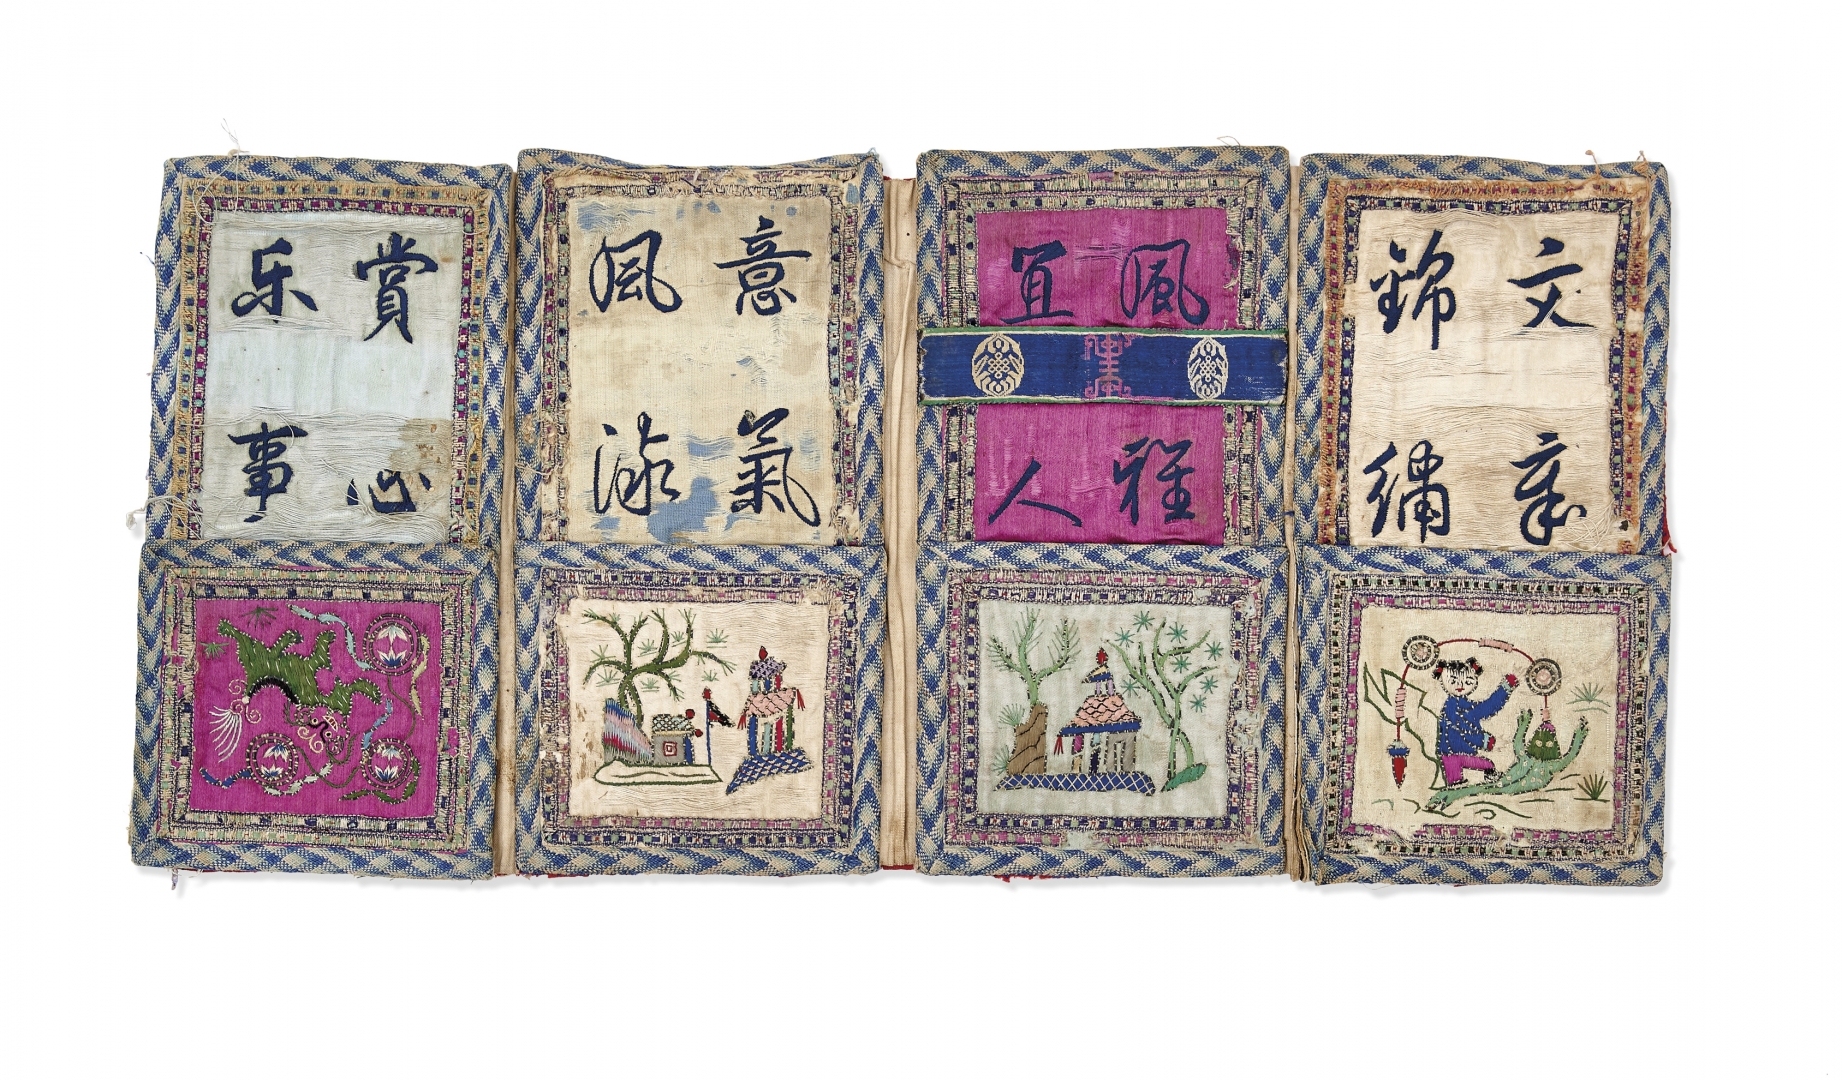 文章
錦繡
風雅
宜人
意氣
風流
賞心
乐事